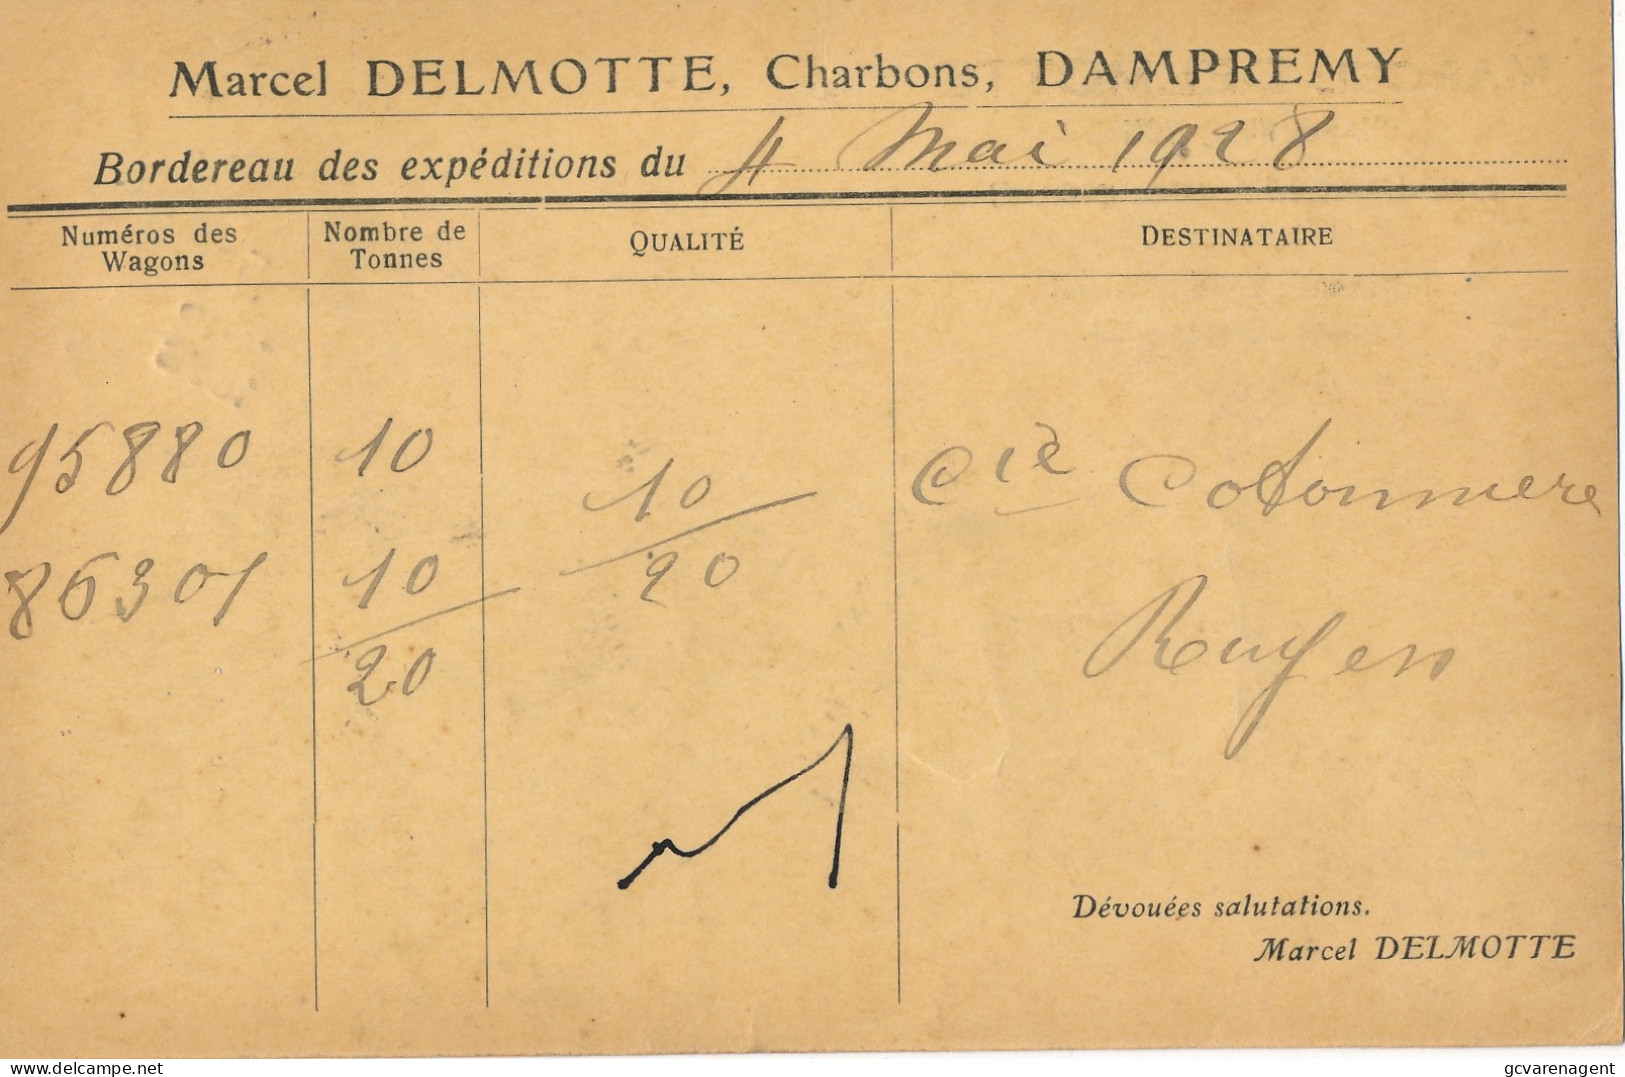 Marcel DELMOTTE, Charbons, DAMPREMY
Bordereau des expéditions du 4 Mai 1928
Numéros des Wagons
Nombre de Tonnes
QUALITÉ
DESTINATAIRE
95880 10
10/20
Cie Cotonnière
86301 10
20
Ruyen
Dévouées salutations.
Marcel DELMOTTE
delcampe.net
gcvarenagent